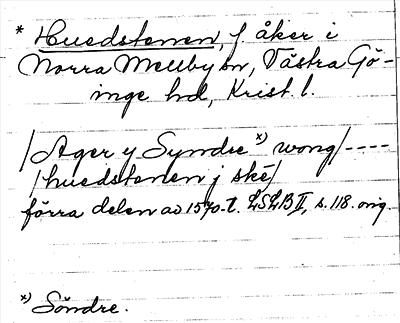 * Huedstenen, f. åker i
Norra Mellby sn, Västra Gö-
inge hd, Krist. l.
/Ager y Syndre x) wong/----
/huedstenen j ské/
förra delen av 1570-t. LSLB II, s. 118. orig.
x) Söndre.